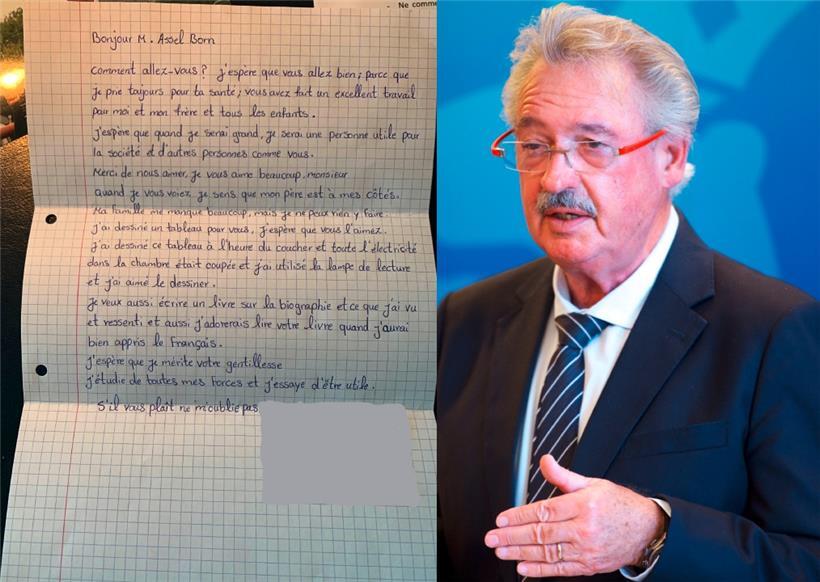 Ne comme
Bonjour M. Assel Born
Comment allez-vous ? j'espère que vous allez bien, parce que
Je prie toujours pour ta santé; vous avez fait un excellent travail
pour moi et mon frère et tous les enfants.
J'espère que quand je serai grand, je serai une personne utile pour
la société et d'autres personnes comme vous.
Merci de nous aimer, Je vous aime beaucoup, monsieur
quand je vous voiez, je sens que mon père est à mes côtés.
Ma famille me manque beaucoup, mais je ne peux rien y faire.
J'ai dessiné un tableau pour vous, j'espère que vous l'aimez.
J'ai dessiné ce tableau à l'heure du coucher et toute l'électricité
dans la chambre était coupée et j'ai utilisé la lampe de lecture
et j'ai aimé le dessiner.
Je veux aussi écrire un livre sur la biographie et ce que j'ai vu
et ressenti et aussi j'adorerais lire votre livre quand j'aurai
bien appris le Français.
J'espère que je mérite votre gentillesse
J'étudie de toutes mes forces et j'essaye d'être utile.
S'il vous plait ne m'oublie pas